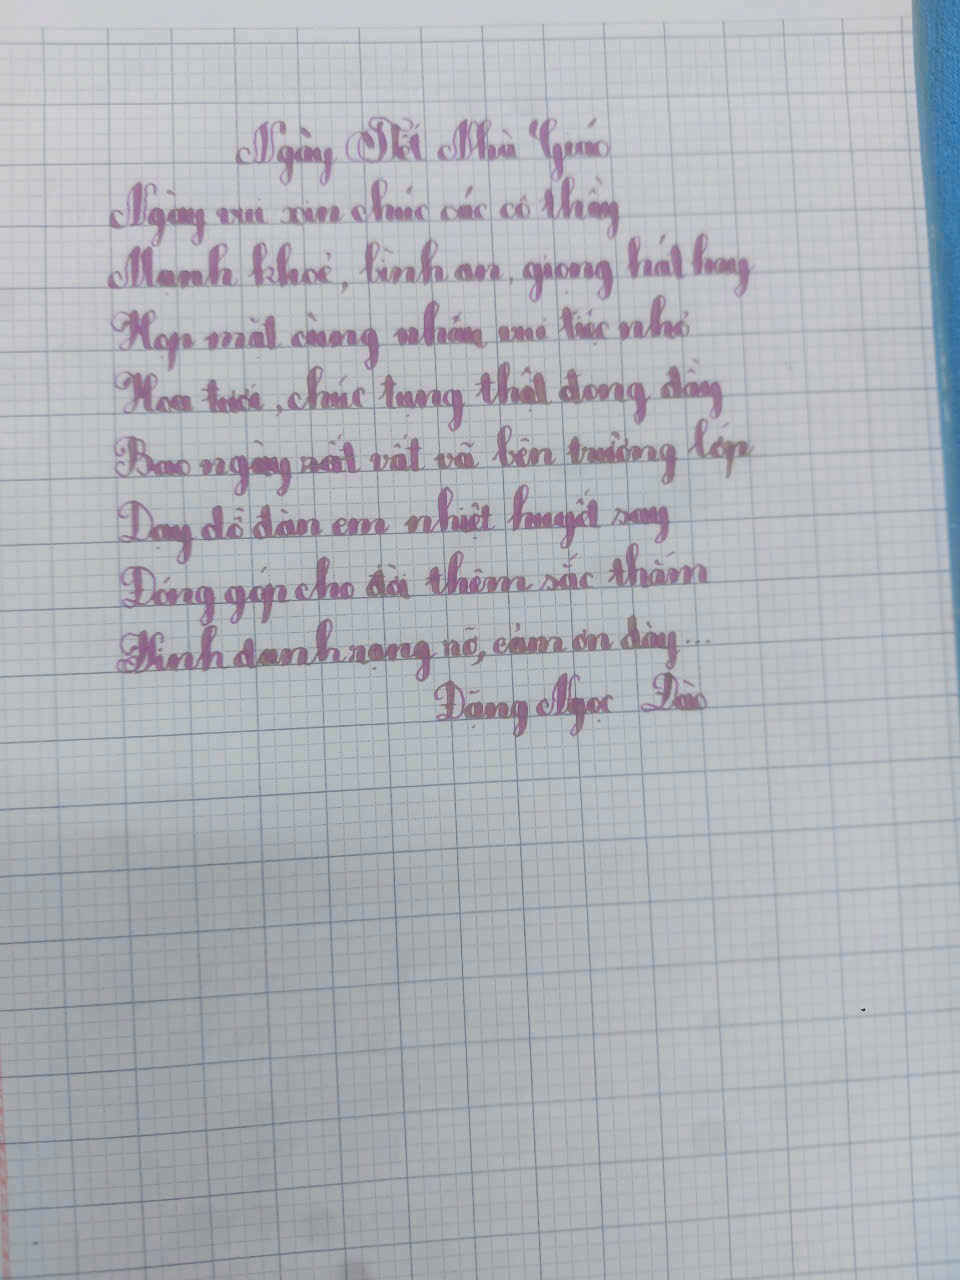 Ngày Tết Nhà Giáo
Ngày vui xin chúc các cô thầy
Mạnh khoẻ, bình an, giọng hát hay
Họp mặt cùng nhau, vui tiệc nhỏ
Hoa tươi, chúc tụng thật dong đầy
Bao ngày vất vã bên trường lớp
Dạy dỗ đàn em nhiệt huyết say
Đóng góp cho đời thêm sắc thắm
Vinh danh rạng rỡ, cảm ơn đây...
Đặng Ngọc Đào